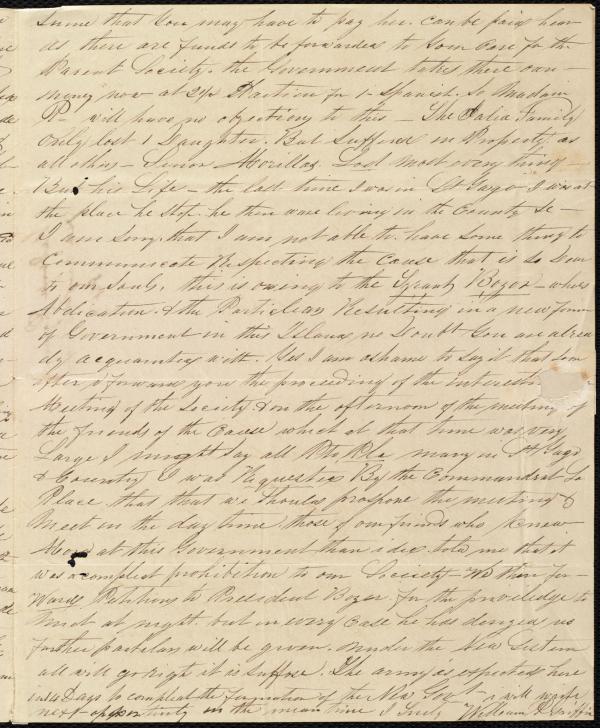 sume that You may have to pay her. can be paid hear
as there are funds to be forwarded to Your Care for the
Parent Society. the Government takes there own
money now at 2½ Haitien for 1 Spanish. So Madam
P- will have no objections to this - The Family
Only lost 1 Daughter. But Sufferd in Property as
all others - Senor Morillas Lost most every thing -
But his Life - the last time I was in St Jago I was at
the place he stop. he then ware living in the County Se -
I am Sorry that I am not able to have some thing to
Communicate Respecting the Cause that is So Dear
to our Souls, this is owing to the Tyrant Boyer - whose
Abdication. & the Particulars Resulting in a new form
of Government in this Island no Doubt You are alrea
dy acquainted with. Yes I am ashame to say it that soon
after I forward you the proceeding of the interesting
Meeting of the Society & on the afternoon of the meeting of
the friends of the Cause which at that time was very
Large I might say all many in St Jago
& Country I was Requested By the Commandant La
Place. that that we Should prospone the meeting &
Meet in the day time those of our friends who Knew
More at this Government than i did. told me that it
was a compleat prohibition to our Society - We then for-
ward Petitions to President Boyer for the priviledge to
meet at night. but in every Case he has denyed us
further particlars will be given. under the New Sistem
all will go right it is Suffose. The army is expected here
in Days to compleat the formation of the New Govt - i will write
next oppertunity in the mean time I Truly William Griffin